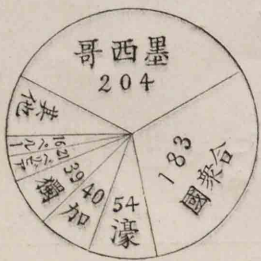 墨西哥
204
合衆國
183
濠
54
加
40
獨
39
21
ペルー
16
其他